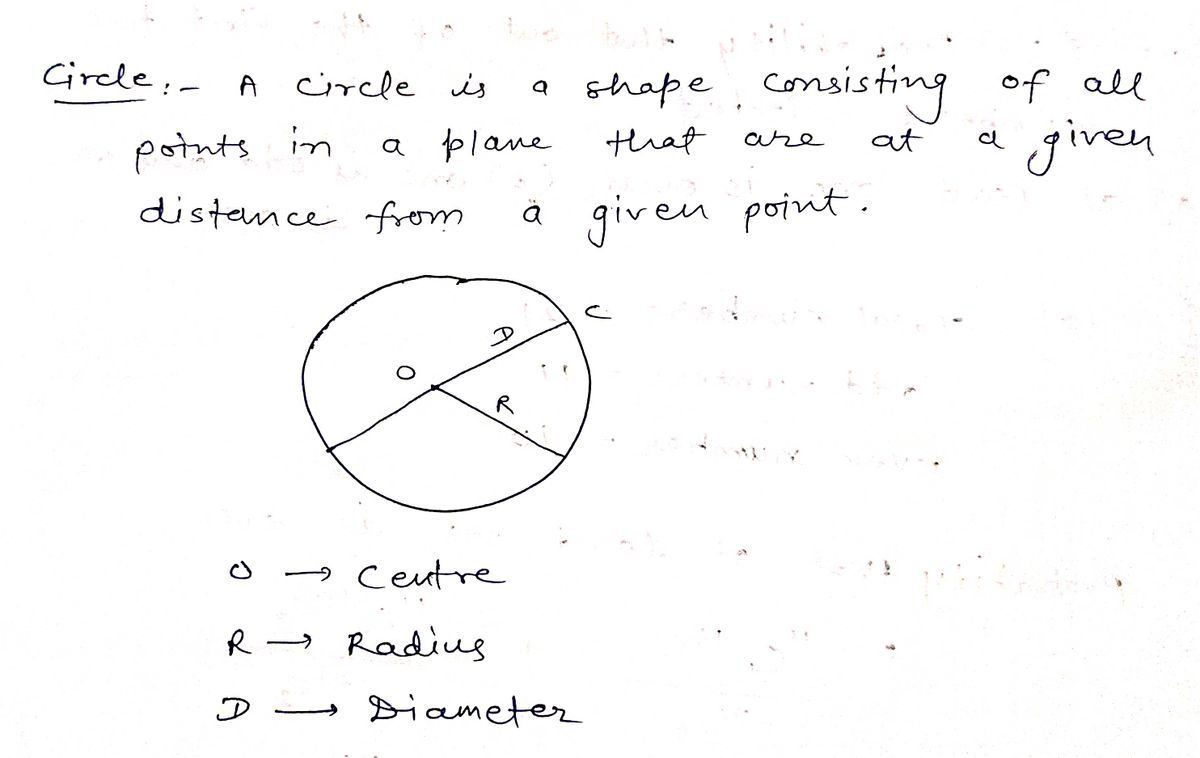 Circle :- A circle is a shape consisting of all
points in a plane that are at a given
distance from a given point.
C
D
O
R
O → Centre
R → Radius
D → Diameter